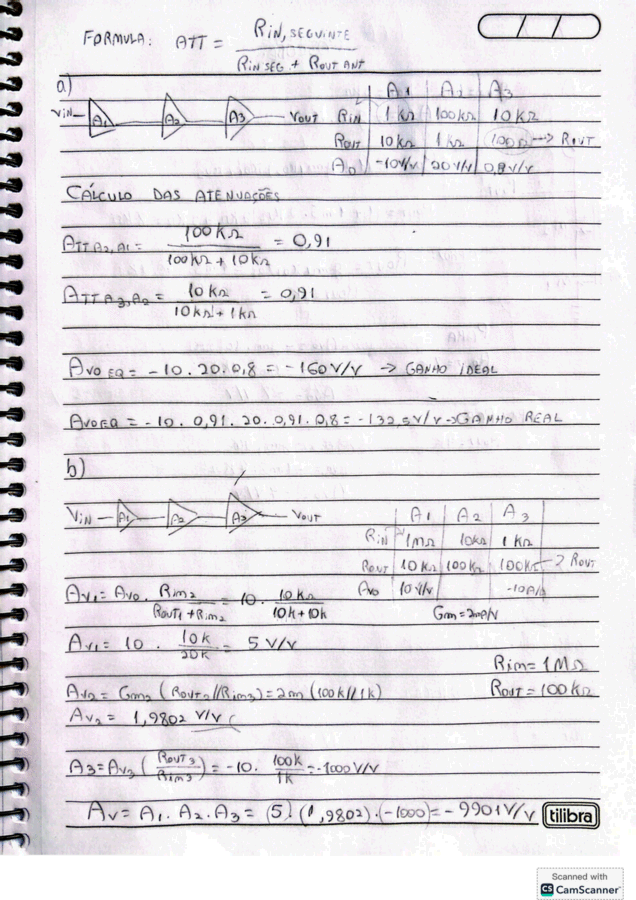 FORMULA: ATT = RIN, SEGUINTE / RIN SEG + ROUT ANT
a)
VIN A1 A2 A3 VOUT
A1 A2 A3
RIN 1 KΩ 100KΩ 10 KΩ
ROUT 10KΩ 1KΩ 100Ω → ROUT
A0 -10V/V 20V/V 0,8V/V
CÁLCULO DAS ATENUAÇÕES
ATT A2,A1 = 100KΩ / 100KΩ + 10KΩ = 0,91
ATT A3,A2 = 10KΩ / 10KΩ + 1KΩ = 0,91
AVO EQ = -10 . 20 . 0,8 = -160V/V → GANHO IDEAL
AVOEQ = -10 . 0,91 . 20 . 0,91 . 0,8 = -132,5V/V → GANHO REAL
b)
VIN A1 A2 A3 VOUT
A1 A2 A3
RIN 1MΩ 10KΩ 1KΩ
ROUT 10KΩ 100KΩ 100KΩ → ROUT
AVO 10V/V -10A/A
Gm=2mA/V
AV1 = AVO . Rim2 / ROUT1 + Rim2 = 10 . 10KΩ / 10K + 10K
AV1 = 10 . 10K / 20K = 5 V/V
Rim = 1MΩ
AV2 = Gm2 (ROUT2 // Rim3) = 2m (100K // 1K)
ROUT = 100KΩ
AV2 = 1,9802 V/V
A3 = AV3 (ROUT3 / Rim3) = -10 . 100K / 1K = -1000 V/V
AV = A1 . A2 . A3 = (5) . (1,9802) . (-1000) = -9901 V/V
tilibra
Scanned with
CS CamScanner